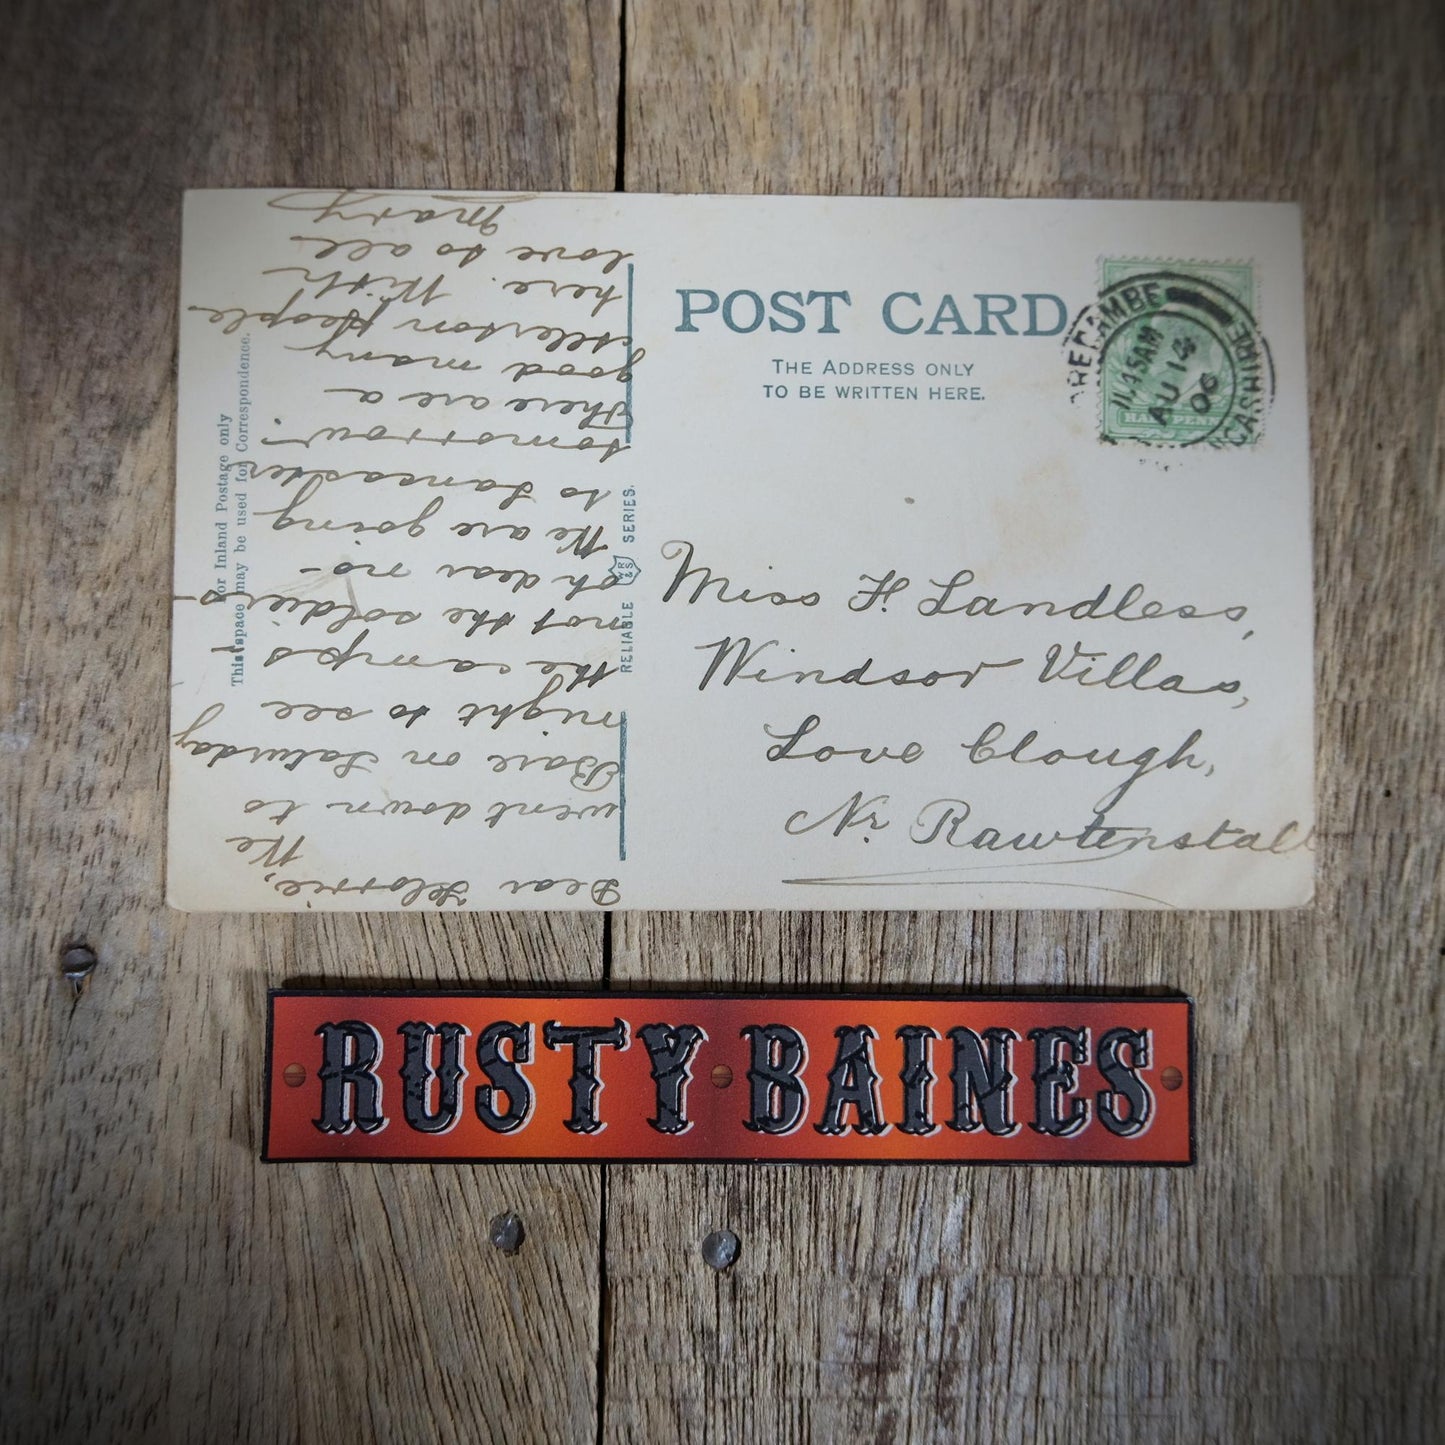 POST CARD
THE ADDRESS ONLY
TO BE WRITTEN HERE.
MORECAMBE
LANCASHIRE
11.45AM
AU 13
06
HALFPENNY
Miss F. Landless,
Windsor Villas,
Love Clough,
Nr Rawtenstall
For Inland Postage only
This space may be used for Correspondence.
RELIABLE WR&S SERIES.
Dear Florrie,
We
went down to
Bare on Saturday
night to see
the camps
not the soldiers-
oh dear no-
We are going
to Lancaster
tomorrow.
There are a
good many
people
here. With
love to all
Mary
RUSTY BAINES